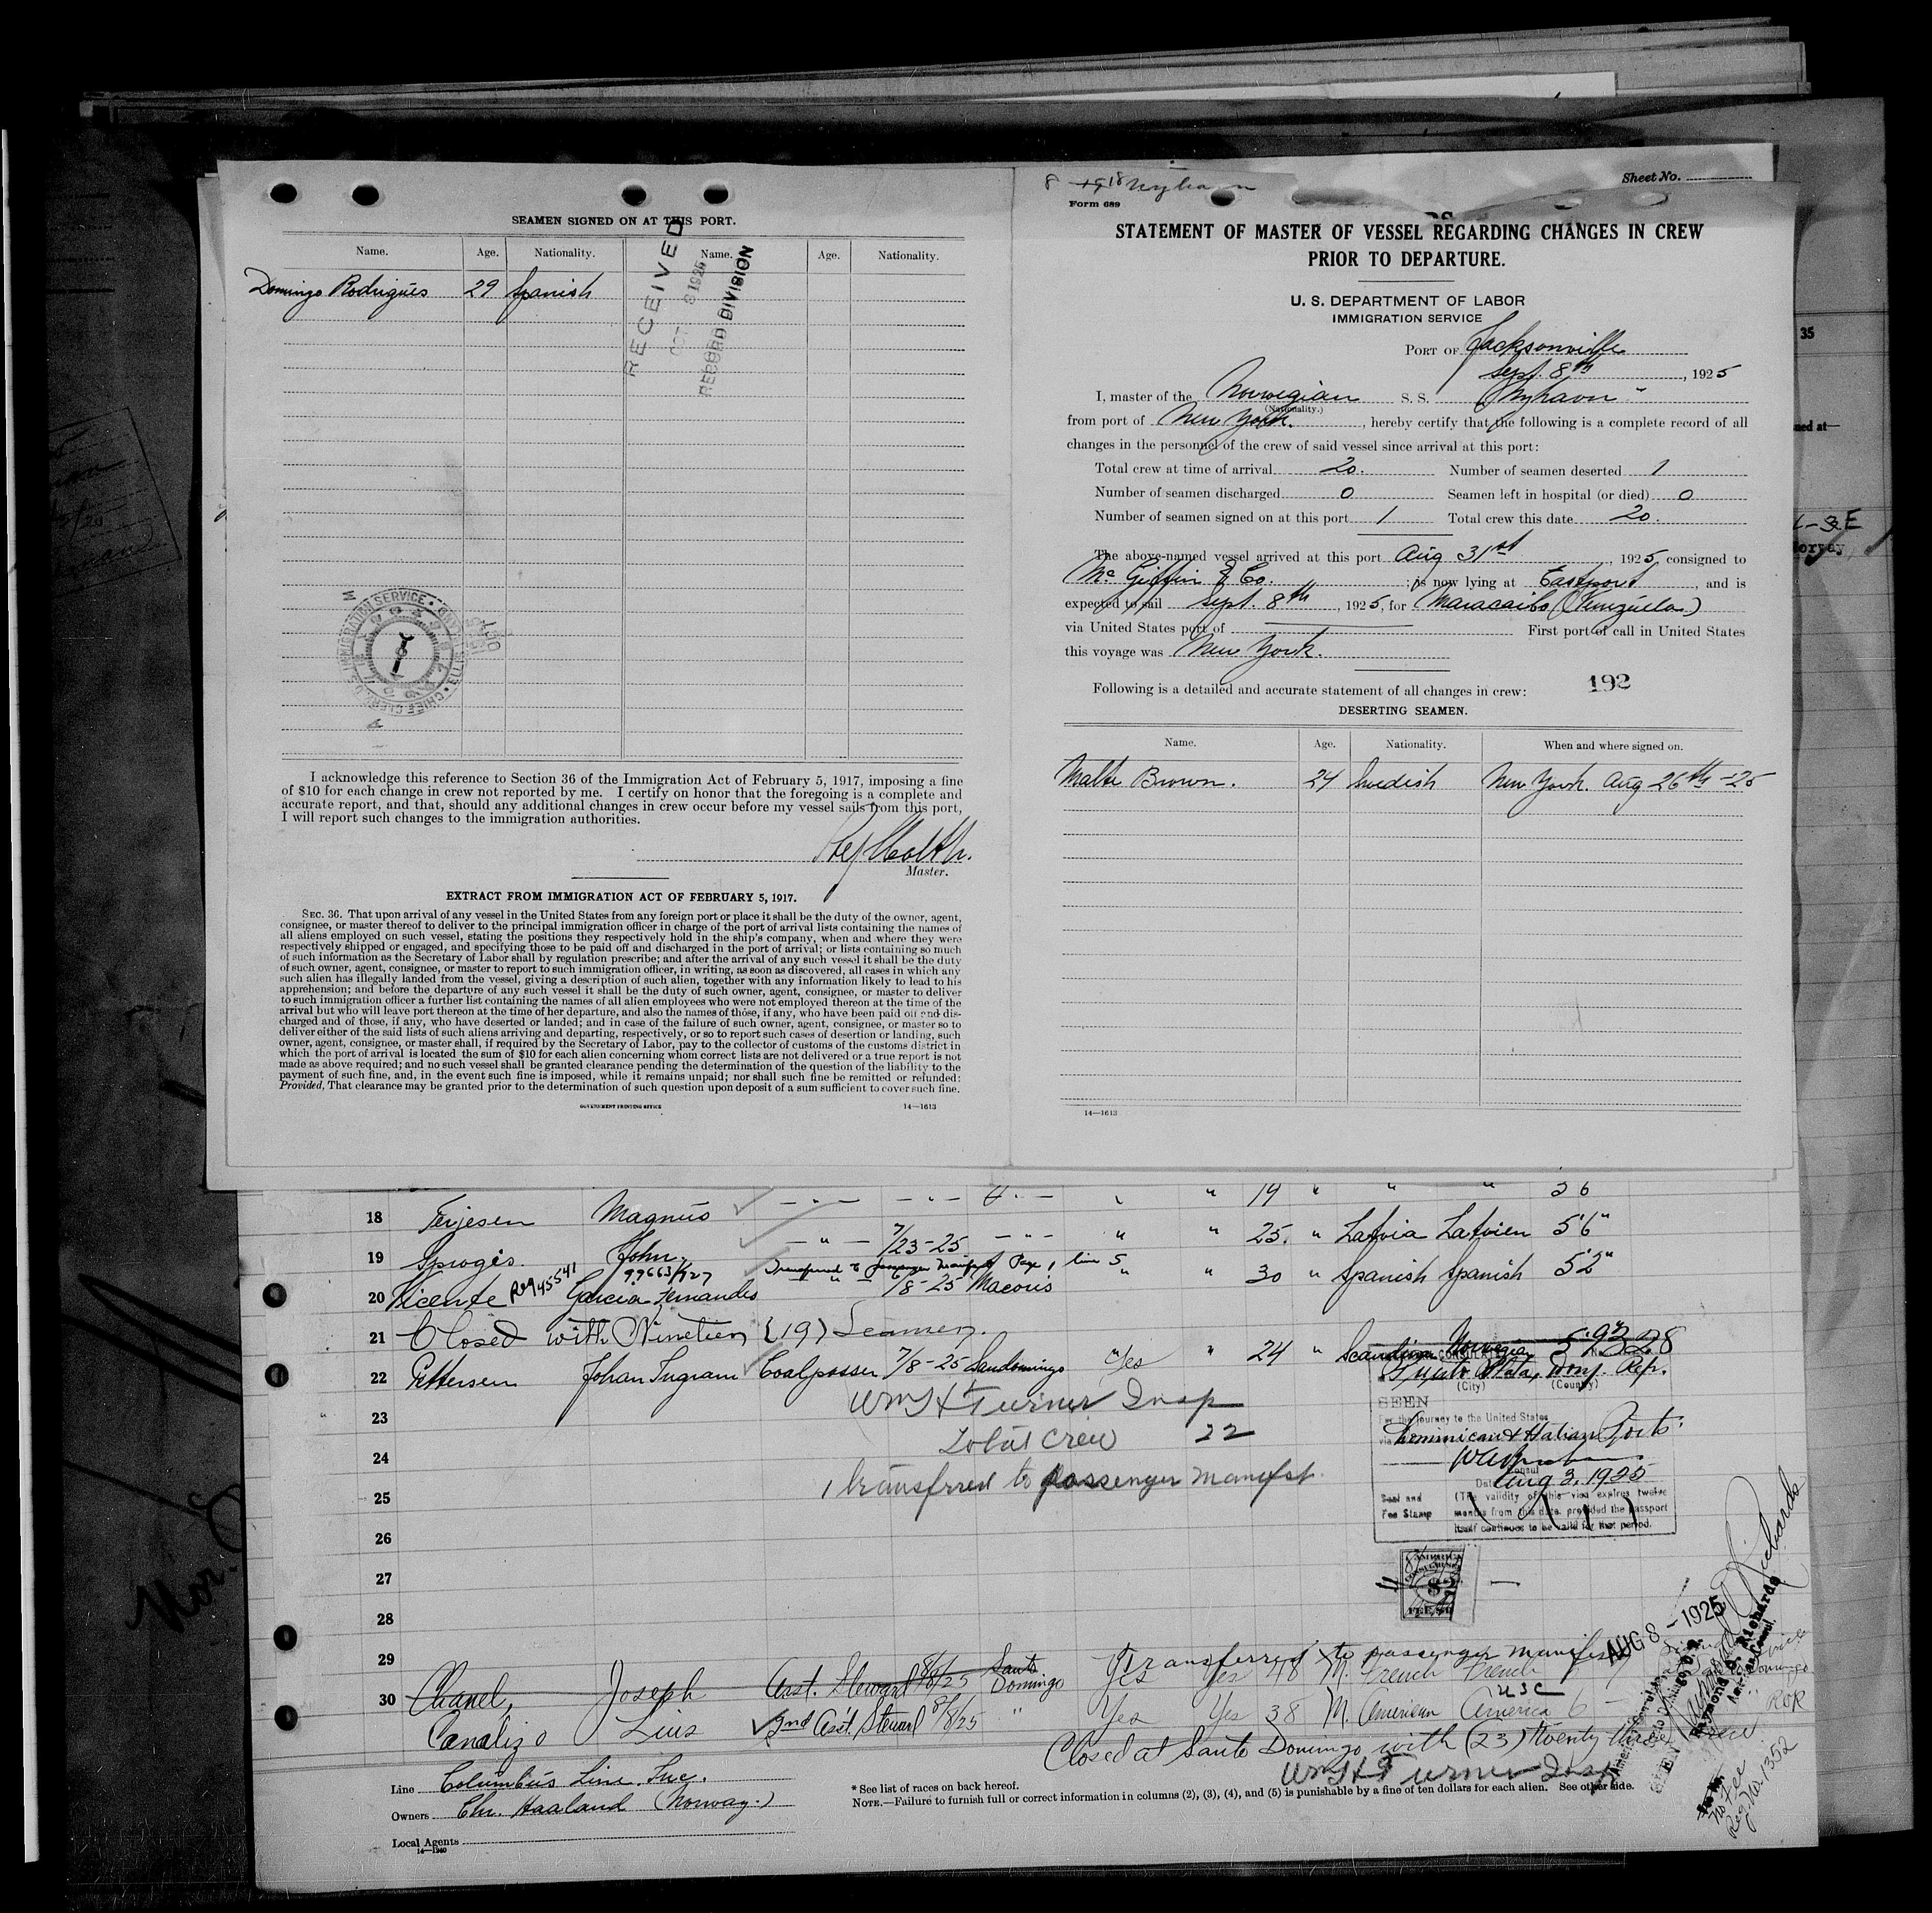 SEAMEN SIGNED ON AT THIS PORT.
Name. Age. Nationality. Name. Age. Nationality.
Domingo Rodrigues 29 Spanish
RECEIVED
OCT 8 1925
RECORD DIVISION
I acknowledge this reference to Section 36 of the Immigration Act of February 5, 1917, imposing a fine
of $10 for each change in crew not reported by me. I certify on honor that the foregoing is a complete and
accurate report, and that, should any additional changes in crew occur before my vessel sails from this port,
I will report such changes to the immigration authorities.
Master.
EXTRACT FROM IMMIGRATION ACT OF FEBRUARY 5, 1917.
SEC. 36. That upon arrival of any vessel in the United States from any foreign port or place it shall be the duty of the owner, agent,
consignee, or master thereof to deliver to the principal immigration officer in charge of the port of arrival lists containing the names of
all aliens employed on such vessel, stating the positions they respectively hold in the ship's company, when and where they were
respectively shipped or engaged, and specifying those to be paid off and discharged in the port of arrival; or lists containing so much
of such information as the Secretary of Labor shall by regulation prescribe; and after the arrival of any such vessel it shall be the duty
of such owner, agent, consignee, or master to report to such immigration officer, in writing, as soon as discovered, all cases in which any
such alien has illegally landed from the vessel, giving a description of such alien, together with any information likely to lead to his
apprehension; and before the departure of any such vessel it shall be the duty of such owner, agent, consignee, or master to deliver
to such immigration officer a further list containing the names of all alien employees who were not employed thereon at the time of the
arrival but who will leave port thereon at the time of her departure, and also the names of those, if any, who have been paid off and dis-
charged and of those, if any, who have deserted or landed; and in case of the failure of such owner, agent, consignee, or master so to
deliver either of the said lists of such aliens arriving and departing, respectively, or so to report such cases of desertion or landing, such
owner, agent, consignee, or master shall, if required by the Secretary of Labor, pay to the collector of customs of the customs district in
which the port of arrival is located the sum of $10 for each alien concerning whom correct lists are not delivered or a true report is not
made as above required; and no such vessel shall be granted clearance pending the determination of the question of the liability to the
payment of such fine, and, in the event such fine is imposed, while it remains unpaid; nor shall such fine be remitted or refunded:
Provided, That clearance may be granted prior to the determination of such question upon deposit of a sum sufficient to cover such fine.
GOVERNMENT PRINTING OFFICE 14—1613
Sheet No.
Form 689
STATEMENT OF MASTER OF VESSEL REGARDING CHANGES IN CREW
PRIOR TO DEPARTURE.
U. S. DEPARTMENT OF LABOR
IMMIGRATION SERVICE
PORT OF Jacksonville
Sept. 8th, 1925
I, master of the Norwegian S. S. "Nyhavn"
(Nationality.)
from port of New York., hereby certify that the following is a complete record of all
changes in the personnel of the crew of said vessel since arrival at this port:
Total crew at time of arrival 20. Number of seamen deserted 1
Number of seamen discharged 0 Seamen left in hospital (or died) 0
Number of seamen signed on at this port 1 Total crew this date 20.
The above-named vessel arrived at this port Aug 31st, 1925, consigned to
Mc Giffin & Co.; is now lying at Eastport, and is
expected to sail Sept. 8th, 1925, for Maracaibo (Venezuela)
via United States port of First port of call in United States
this voyage was New York.
192
Following is a detailed and accurate statement of all changes in crew:
DESERTING SEAMEN.
Name. Age. Nationality. When and where signed on.
Malte Brown. 24 Swedish New York. Aug 26th -25
14—1613
18 Terjesen Magnus 19
19 Sproģis John. 7/23-25 25. " Latvia Latvien 5'6"
Transferred to Passenger Manifest Page 1, line 5
20 Vicente Garcia Fernandes 7/8-25 Macoris " " 30 " Spanish Spanish 5'2"
21 Closed with Nineteen (19) Seamen.
22 Pettersen Johan Ingram Coalpasser 7/8-25 Sandomingo Yes " 24 " Scandina Norwegia
Puerto Plata, Dom. Rep.
(City) (Country)
SEEN
For the journey to the United States
via Dominican & Haitian Ports
Consul
Date Aug 3, 1925
Seal and Fee Stamp
(The validity of this visa expires twelve
months from this date provided the passport
itself continues to be valid for that period.
23 Wm H Turner Insp
24 Total crew 22
25 1 transferred to passenger manifest.
26
27
28
29 Transferred to passenger manifest
30 Chanel, Joseph Asst. Steward 8/8/25 Santo Domingo Yes Yes 48 M. French French
Canalizo Luis 2nd Ass't. Steward 8/8/25 " Yes Yes 38 M. American America USC 6
AUG 8 - 1925
Closed at Santo Domingo with (23) twenty three crew
Wm H Turner Insp
Line Columbus Line. Inc.
Owners Chr. Haaland (Norway.)
Local Agents
14—1240
* See list of races on back hereof.
NOTE.—Failure to furnish full or correct information in columns (2), (3), (4), and (5) is punishable by a fine of ten dollars for each alien. See other side.
No Fee
Raymond D. Richards
35